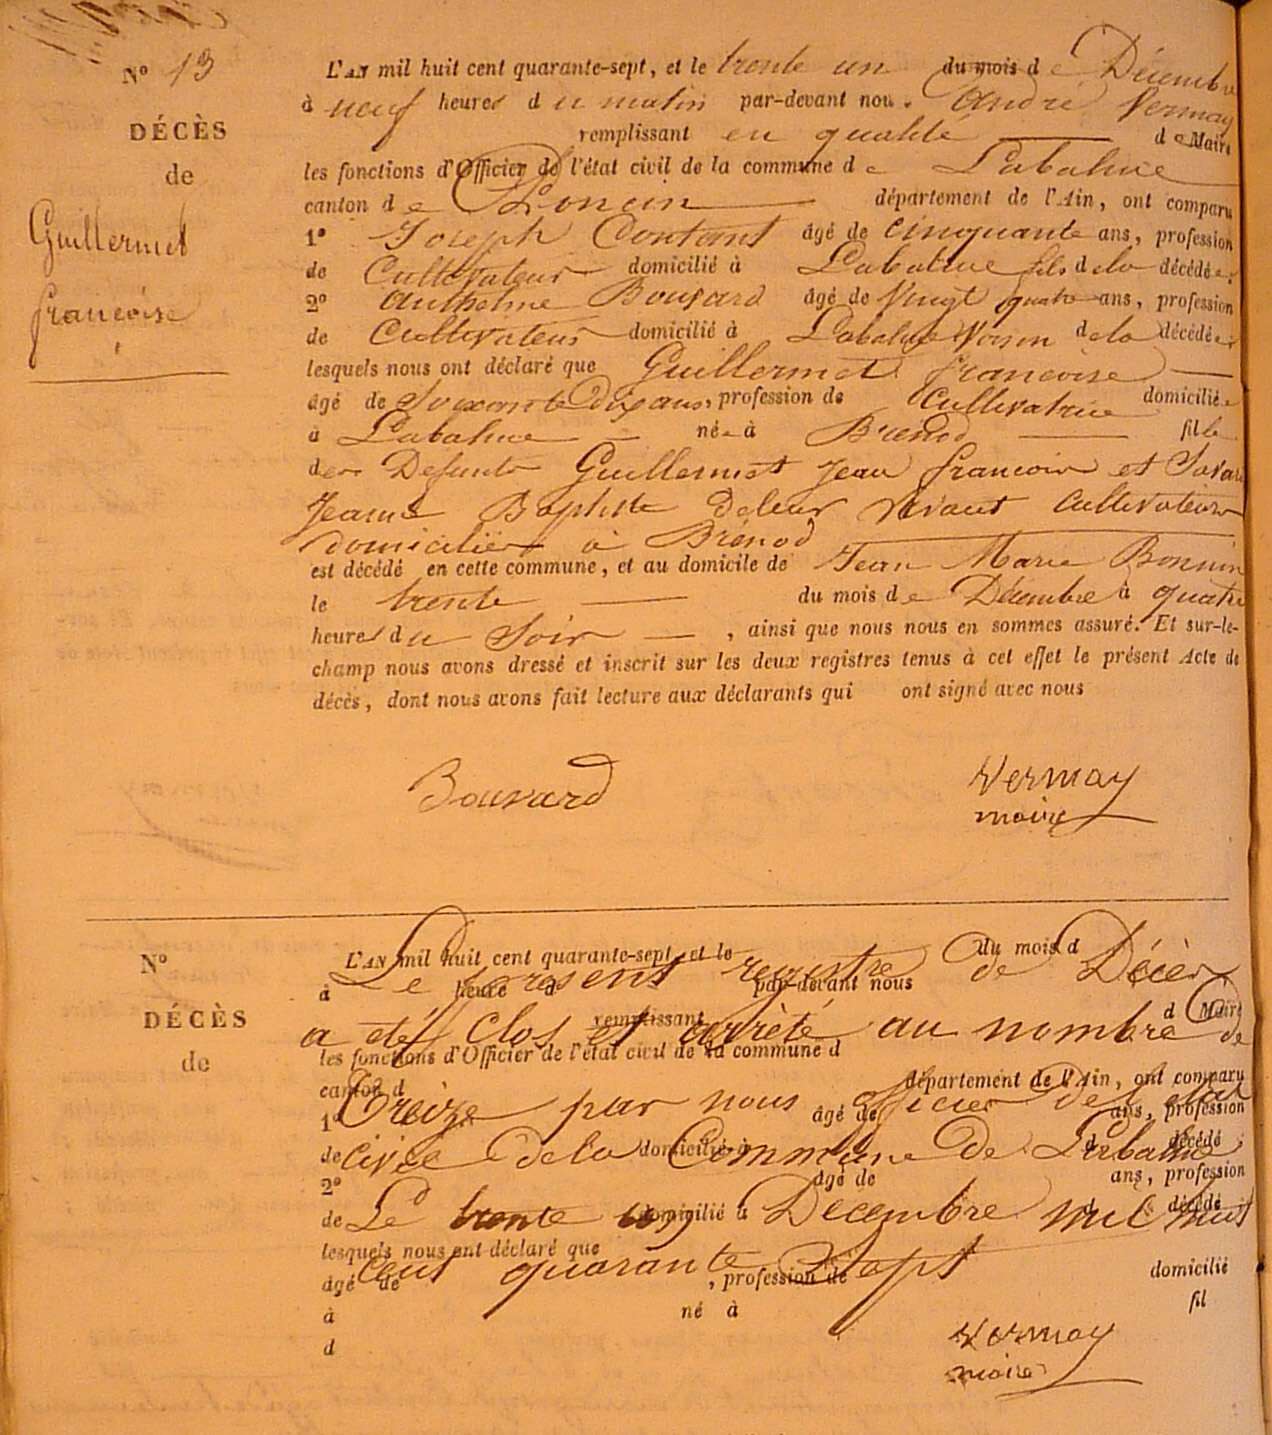 N° 13
DÉCÈS
de
Guillermet
francoise
L'AN mil huit cent quarante-sept, et le trente un du mois de Décembre
à neuf heures du matin par-devant nous André Vermay
remplissant en qualité de Maire
les fonctions d'Officier de l'état civil de la commune de Labalme
canton de Poncin département de l'Ain, ont comparu
1° Joseph Contant âgé de cinquante ans, profession
de Cultivateur domicilié à Labalme fils de la décédée
2° anthelme Bouvard âgé de Vingt quatre ans, profession
de Cultivateur domicilié à Labalme Voisin de la décédée
lesquels nous ont déclaré que Guillermet francoise
âgé de Soixante Dix ans, profession de Cultivatrice domiciliée
à Labalme née à Brénod fille
des Defunts Guillermet Jean francois et
Jeanne Baptiste de leur Vivant Cultivateurs
domiciliés à Brénod
est décédé en cette commune, et au domicile de Jean Marie
le trente du mois de Décembre à quatre
heures du Soir, ainsi que nous nous en sommes assuré. Et sur-le-
champ nous avons dressé et inscrit sur les deux registres tenus à cet effet le présent Acte de
décès, dont nous avons fait lecture aux déclarants qui ont signé avec nous
Bouvard
Vermay
maire
N°
DÉCÈS
de
L'AN mil huit cent quarante-sept, et le du mois d
Le present registre de Décès
à heure d par-devant nous
remplissant d Maire
a été Clos et arrêté au nombre de
les fonctions d'Officier de l'état civil de la commune d
canton d département de l'Ain, ont comparu
Treize par nous officier de l'état
1° âgé de ans, profession
de domicilié à d décédé
civil de la Commune de Labalme
2° âgé de ans, profession
de domicilié à d décédé
Le trente un Décembre mil huit
lesquels nous ont déclaré que
cent quarante Sept
âgé de , profession de domicilié
à né à fil
d
Vermay
maire